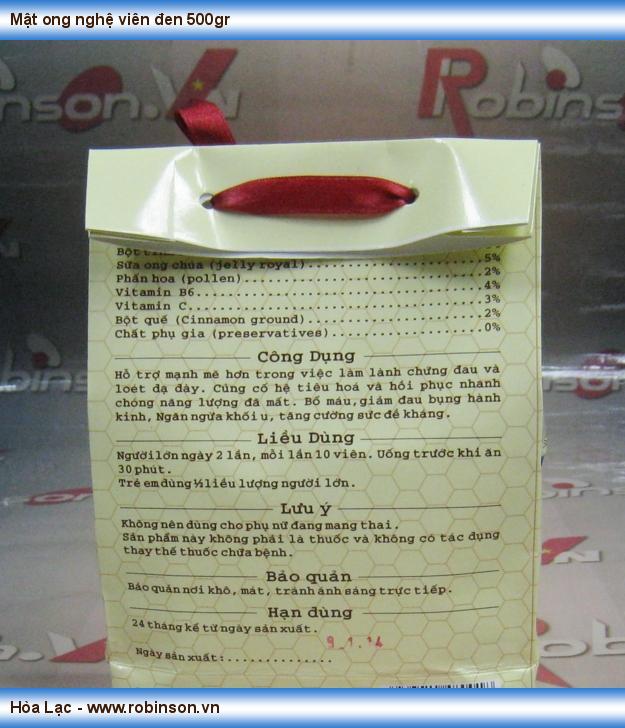 Mật ong nghệ viên đen 500gr
Robinson.VN
Robinson
Bột
5%
Sữa ong chúa (jelly royal)
2%
Phấn hoa (pollen)
4%
Vitamin B6
3%
Vitamin C
2%
Bột quế (Cinnamon ground)
0%
Chất phụ gia (preservatives)
Công Dụng
Hỗ trợ mạnh mẽ hơn trong việc làm lành chứng đau và
loét dạ dày. Củng cố hệ tiêu hoá và hồi phục nhanh
chóng năng lượng đã mất. Bổ máu, giảm đau bụng hành
kinh, Ngăn ngừa khối u, tăng cường sức đề kháng.
Liều Dùng
Người lớn ngày 2 lần, mỗi lần 10 viên. Uống trước khi ăn
30 phút.
Trẻ em dùng ½ liều lượng người lớn.
Lưu ý
Không nên dùng cho phụ nữ đang mang thai.
Sản phẩm này không phải là thuốc và không có tác dụng
thay thế thuốc chữa bệnh.
Bảo quản
Bảo quản nơi khô, mát, tránh ánh sáng trực tiếp.
Hạn dùng
24 tháng kể từ ngày sản xuất.
Ngày sản xuất:..............
Hòa Lạc - www.robinson.vn